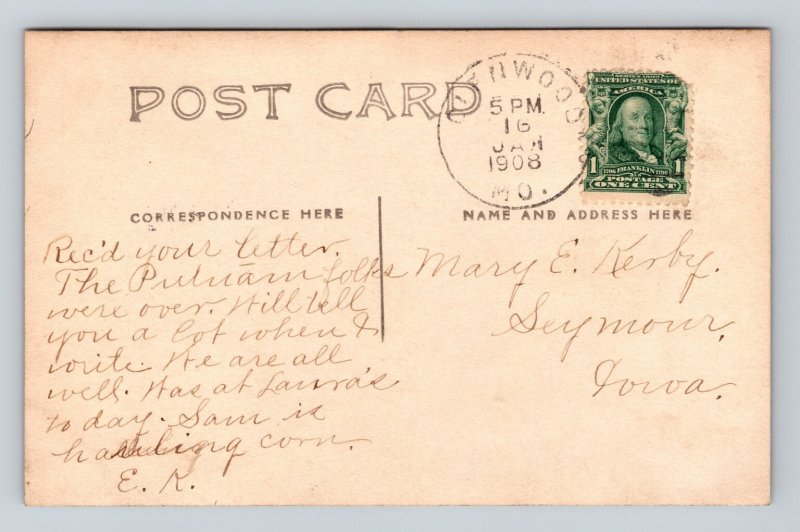 POST CARD
GLENWOOD
5 PM
16
JAN
1908
MO.
SERIES 1902
UNITED STATES OF
AMERICA
1 1
1706 FRANKLIN 1790
POSTAGE
ONE CENT
CORRESPONDENCE HERE
NAME AND ADDRESS HERE
Rec'd your letter.
The Putnam folks
were over. Will tell
you a lot when I
write. We are all
well. Was at Laura's
to day. Sam is
hauling corn.
E. K.
Mary E. Kerby.
Seymour,
Iowa.